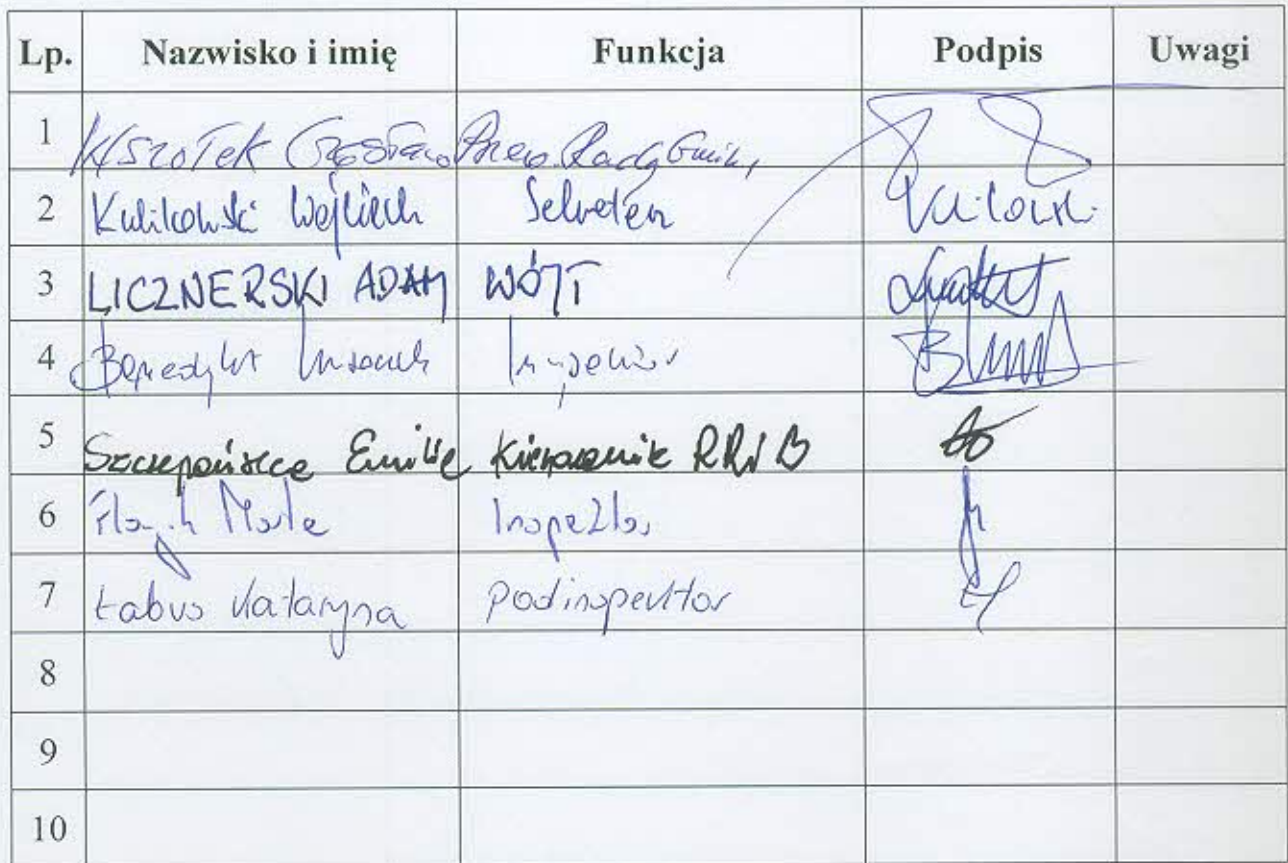 Lp. Nazwisko i imię Funkcja Podpis Uwagi
1 Czesław Przew. Rady Gminy
2 Kulikowski Wojciech Sekretarz
3 LICZNERSKI ADAM WÓJT
4 Benedykt Inspektor
5 Szczepańska Emilia Kierownik RRiB
6 Inspektor
7 Łabuś Katarzyna podinspektor
8
9
10